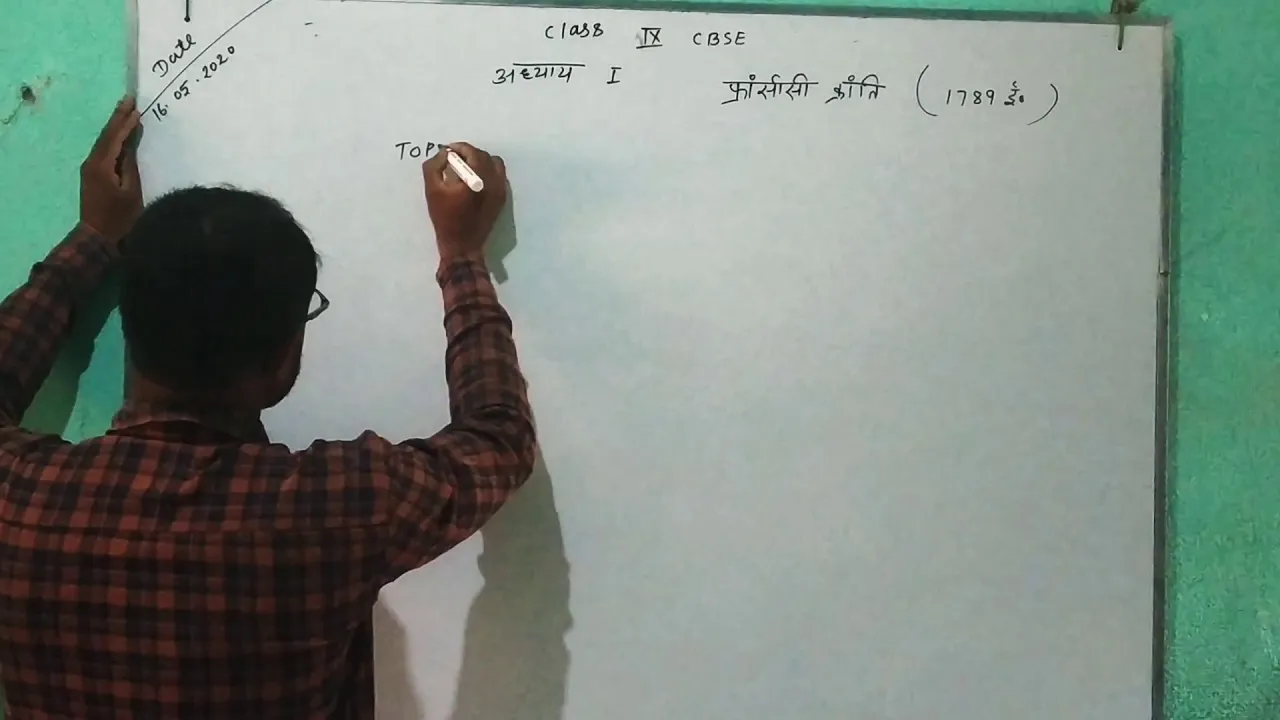 Date
16.05.2020
Class IX CBSE
अध्याय I
फ्रांसीसी क्रांति (1789 ई०)
TOP